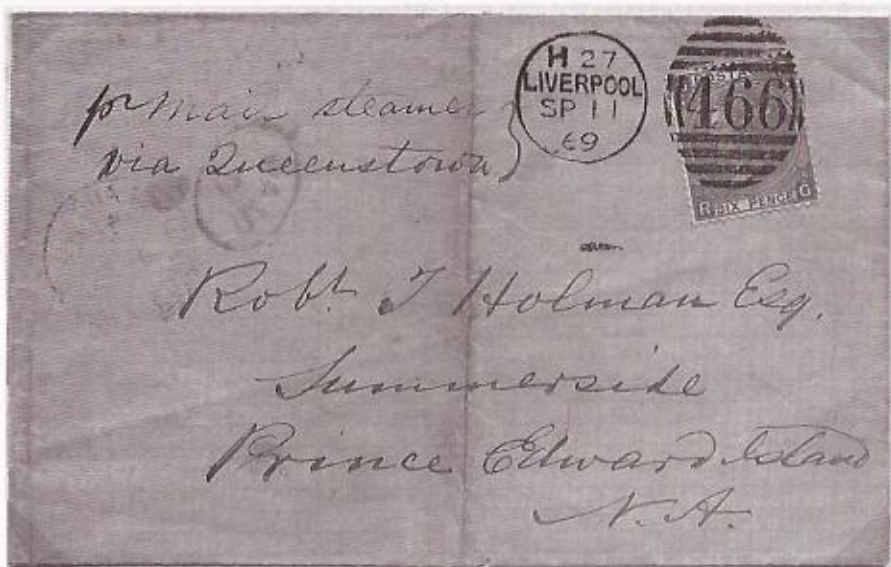 pr Mail steamer
via Queenstown
H 27
LIVERPOOL
SP 11
69
POSTA
466
R SIX PENCE G
Robt. T Holman Esq.
Summerside
Prince Edward Island
N. A.